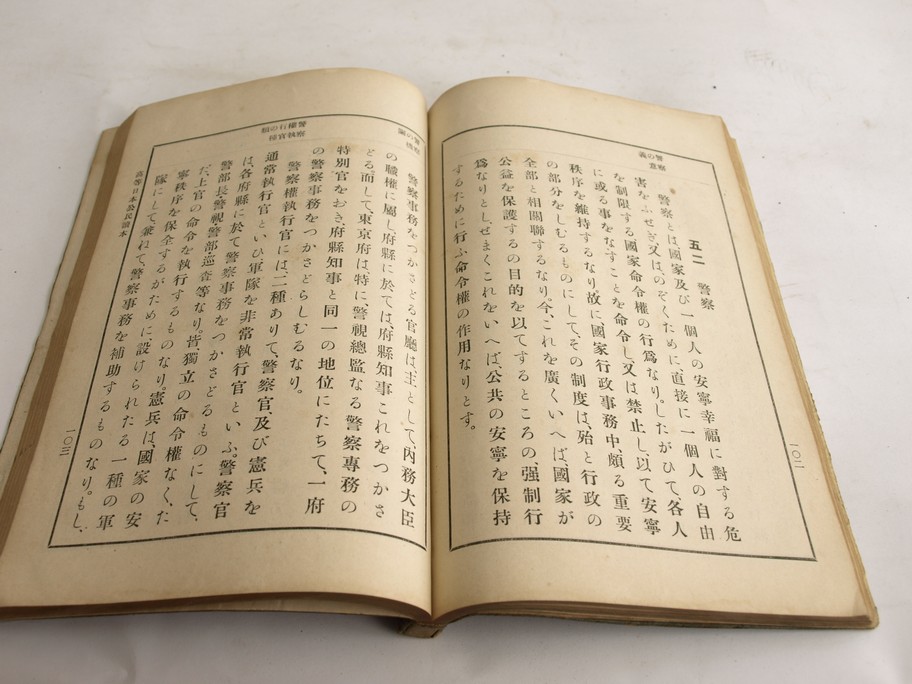 警察の意義
五二　警察
警察とは、國家及び一個人の安寧幸福に對する危
害をふせぎ、又は、のぞくために、直接に一個人の自由
を制限する國家命令權の行爲なり。したがひて、各人
に或る事をなすことを命令し、又は禁止し、以て安寧
秩序を維持するなり。故に、國家行政事務中、頗る重要
の部分をしむるものにして、その制度は、殆と行政の
全部と相關聯するなり。今、これを廣くいへば、國家が
公益を保護するの目的を以てするところの、強制行
爲なりとし、せまくこれをいへば、公共の安寧を保持
するために行ふ命令權の作用なりとす。
一〇二
警察事務をつかさどる官廳は、主として、內務大臣
の職權に屬し、府縣に於ては、府縣知事これをつかさ
どる。而して、東京府は、特に警視總監なる警察專務の
特別官をおき、府縣知事と同一の地位にたちて、一府
の警察事務をつかさどらしむるなり。
警察權執行官の種類
警察權執行官には、二種ありて、警察官、及び憲兵を
通常執行官といひ、軍隊を非常執行官といふ。警察官
は、各府縣に於て警察事務をつかさどるものにして、
警部長、警視、警部、巡査等なり。皆、獨立の命令權なく、た
だ、上官の命令を執行するものなり。憲兵は、國家の安
寧秩序を保全するがために設けられたる一種の軍
隊にして、兼ねて、警察事務を補助するものなり。もし、
高等日本公民讀本
一〇三